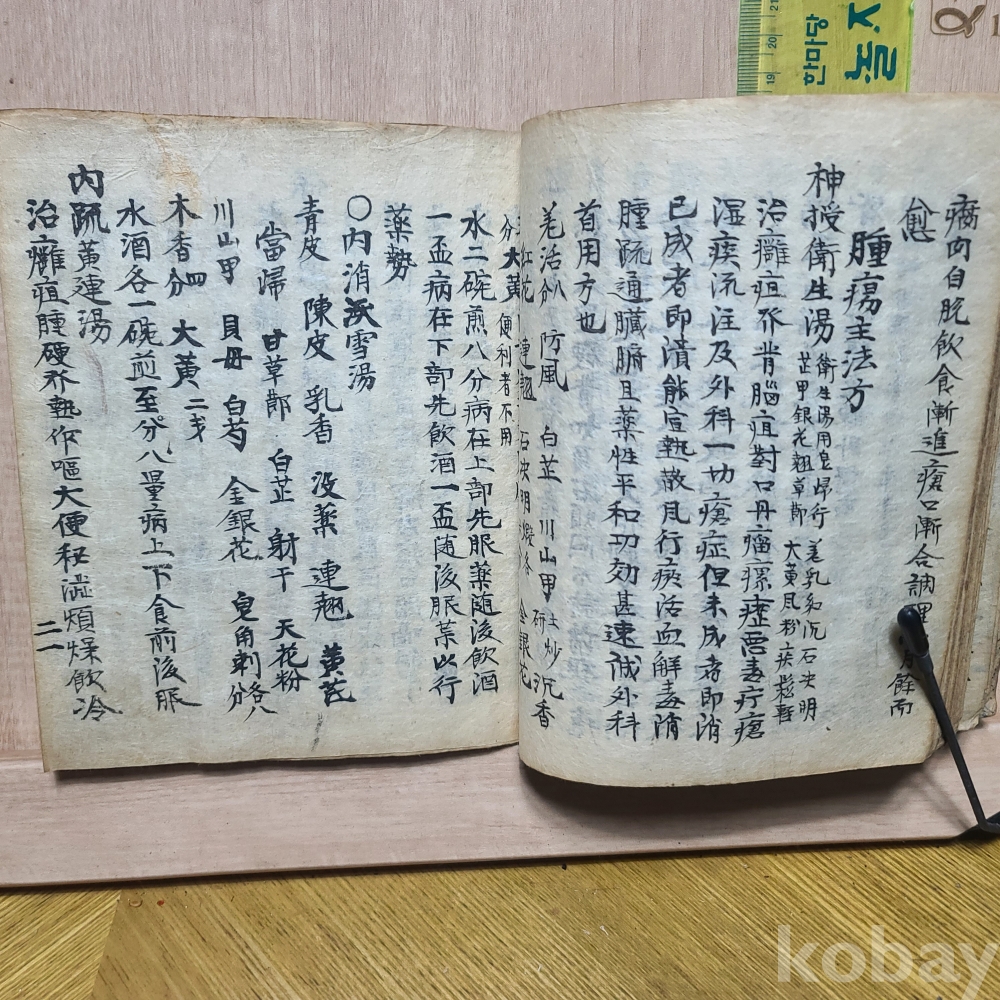 瘍內自脫飮食漸進瘡口漸合調理
愈
腫瘍主法方
神授衛生湯 衛生湯用皂歸行 羌乳紅沉石决明
芷甲銀花翹草節 大黃風粉疾鬆輕
治癰疽發背腦疽對口丹瘤瘰癧惡毒疔瘡
湿痰流注及外科一切瘡症但未成者即消
已成者即潰能宣熱散風行痰活血解毒消
腫疏通臟腑且藥性平和功効甚速誠外科
首用方也
羌活八分 防風 白芷 川山甲土炒研 沉香
紅花 連翹 石决明煅 金銀花
分 大黃 便利者不用
水二碗煎八分病在上部先服薬随後飮酒
一盃病在下部先飮酒一盃随後服薬以行
薬勢
〇內消沃雪湯
青皮 陳皮 乳香 没薬 連翹 黃芪
當歸 甘草節 白芷 射干 天花粉
川山甲 貝母 白芍 金銀花 皂角刺各八分
木香四分 大黃二戋
水酒各一碗煎至八分量病上下食前後服
內疏黃連湯
治癰疽腫硬發熱作嘔大便秘澁煩燥飮冷
二一
한마당
19 20 21
kobay